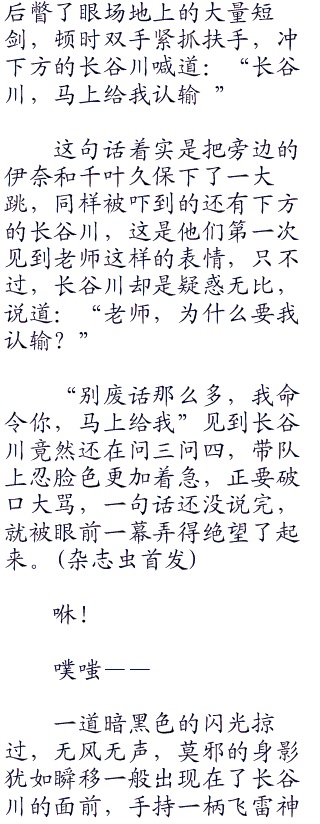 后瞥了眼场地上的大量短
剑，顿时双手紧抓扶手，冲
下方的长谷川喊道：“长谷
川，马上给我认输 ”
这句话着实是把旁边的
伊奈和千叶久保下了一大
跳，同样被吓到的还有下方
的长谷川，这是他们第一次
见到老师这样的表情，只不
过，长谷川却是疑惑无比，
说道：“老师，为什么要我
认输？”
“别废话那么多，我命
令你，马上给我”见到长谷
川竟然还在问三问四，带队
上忍脸色更加着急，正要破
口大骂，一句话还没说完，
就被眼前一幕弄得绝望了起
来。(杂志虫首发)
咻！
噗嗤——
一道暗黑色的闪光掠
过，无风无声，莫邪的身影
犹如瞬移一般出现在了长谷
川的面前，手持一柄飞雷神